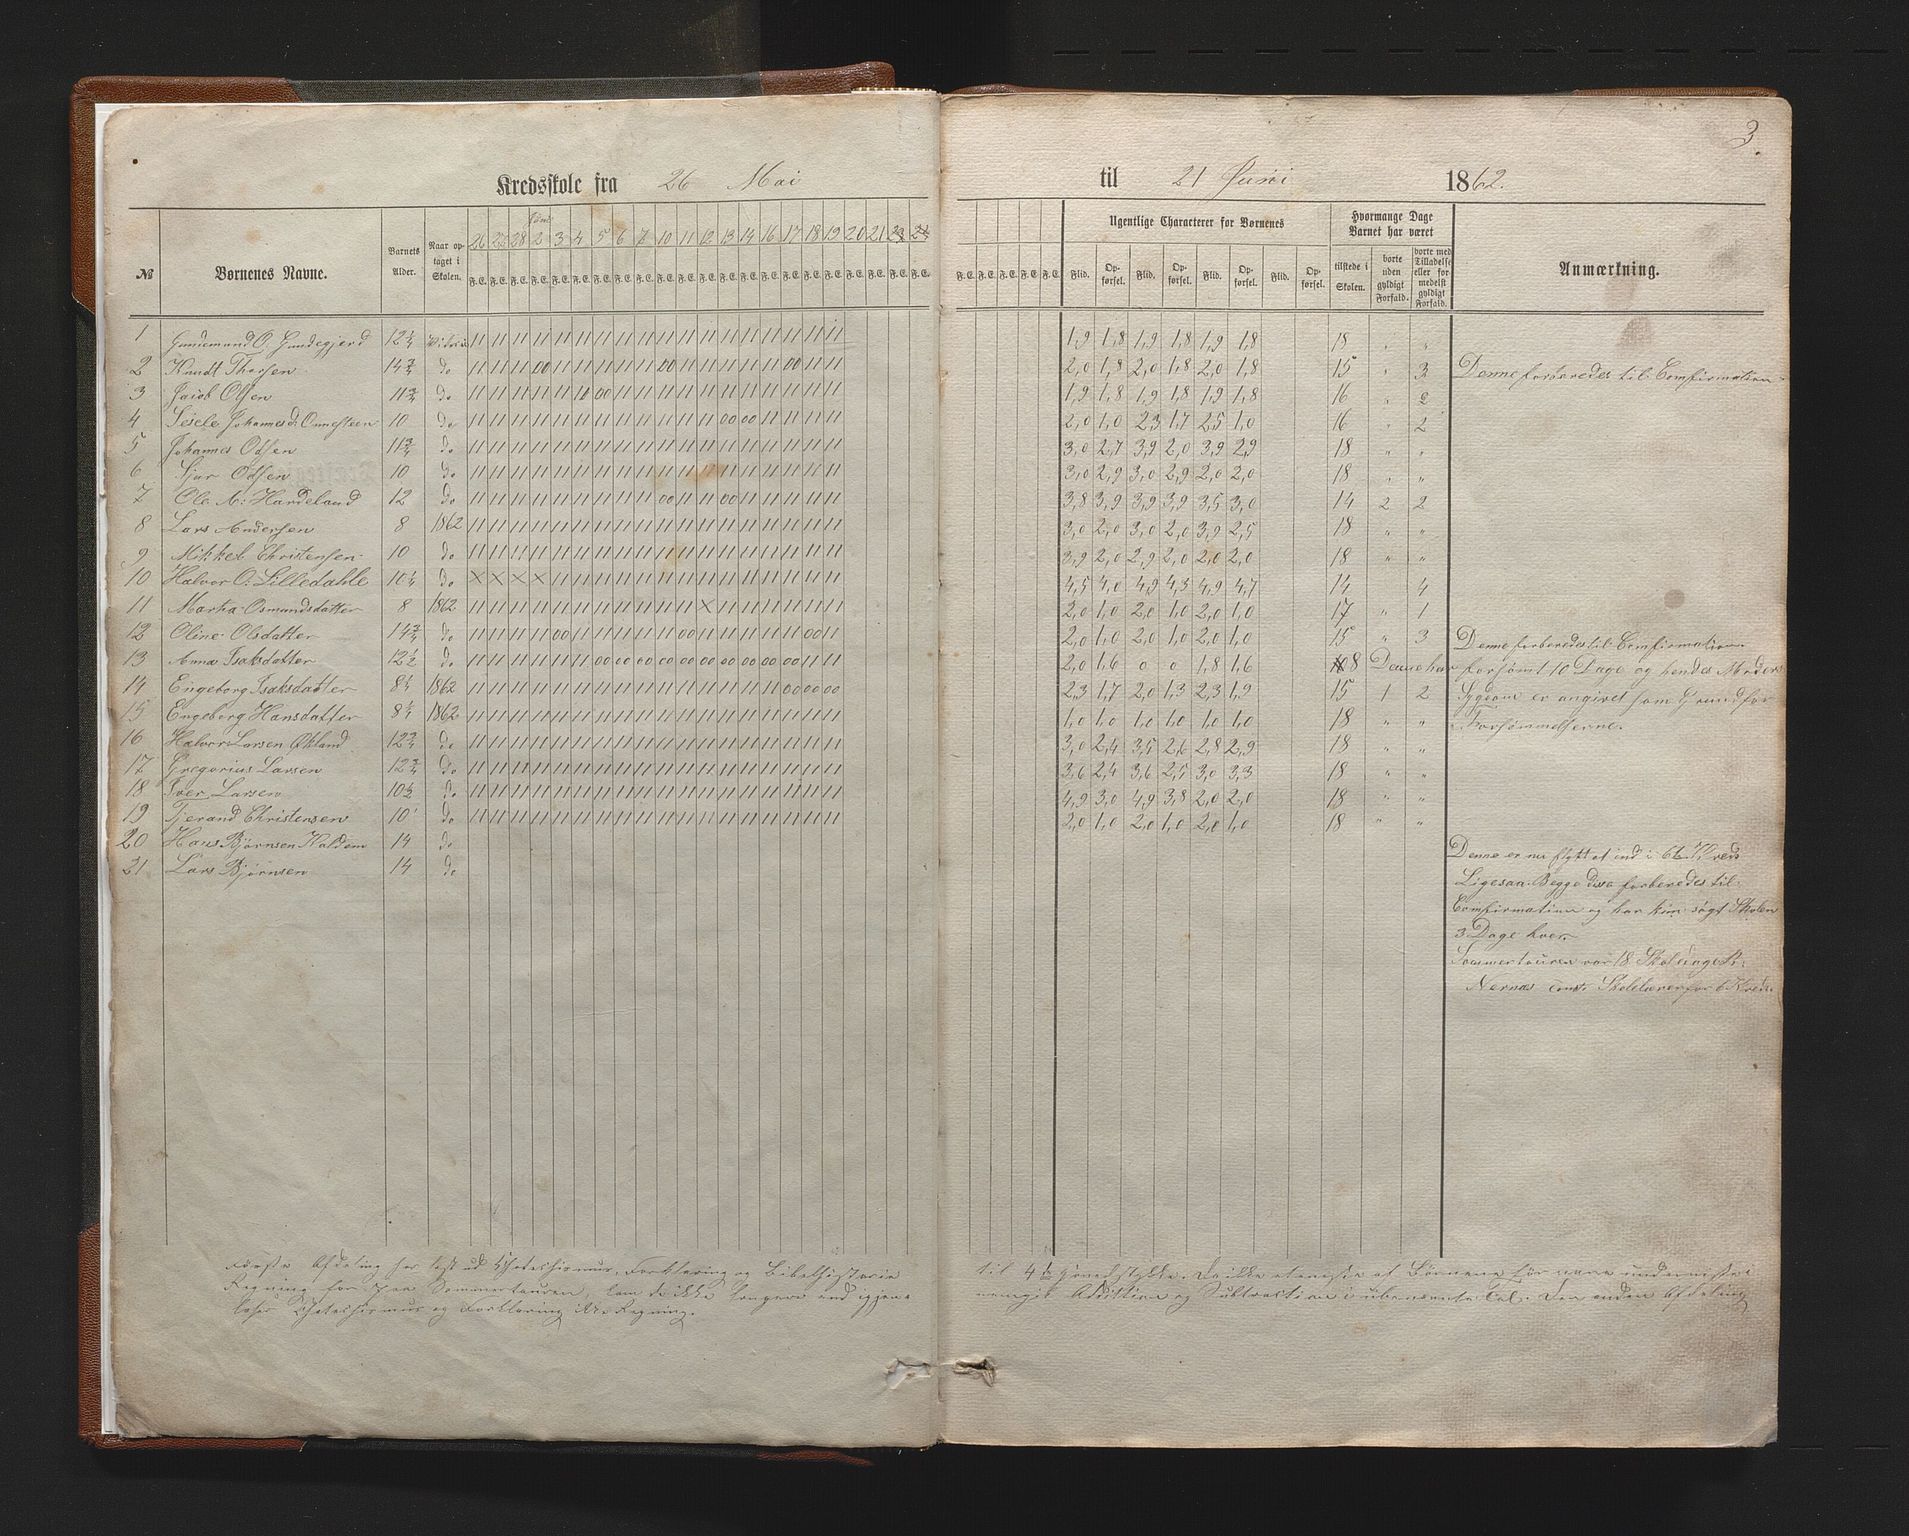 3.
Kredsskole fra 26 Mai til 21 Juni 1862.
№ Børnenes Navne. Barnets Alder. Naar optaget i Skolen. 26 27 28 Juni 2 3 4 5 6 7 10 11 12 13 14 16 17 18 19 20 21
F. E.
Ugentlige Characterer for Børnenes
Flid. Opførsel. Flid. Opførsel. Flid. Opførsel. Flid. Opførsel.
Hvormange Dage Barnet har været
tilstede i Skolen. borte uden gyldigt Forfald. borte med Tilladelse eller formedelst gyldigt Forfald.
Anmærkning.
1 Gundemund O. Gundegjerd 12 1/4 1,9 1,8 1,9 1,8 1,9 1,8 18 " "
2 Knudt Thorsen 14 3/4 do 2,0 1,8 2,0 1,8 2,0 1,8 15 " 3 Denne forberedes til Comfirmation
3 Jaiob Olsen 11 3/4 do 1,9 1,8 1,9 1,8 1,9 1,8 16 " 2
4 Sisele Johannesd: Onnesteen 10 do 2,0 1,0 2,3 1,7 2,5 1,0 16 " 2
5 Johannes Odsen 11 3/4 do 3,0 2,7 3,9 2,0 3,9 2,9 18 " "
6 Sjur Odsen 10 do 3,0 2,9 3,0 2,9 2,0 2,0 18 " "
7 Ole A: Hardeland 12 do 3,8 3,9 3,9 3,9 3,5 3,0 14 2 2
8 Lars Andersen 8 1862 3,0 2,0 3,0 2,0 3,9 2,5 18 " "
9 Mikkel Christensen 10 do 3,9 2,0 2,9 2,0 2,0 2,0 18 " "
10 Halvor O: Lilledahle 10 1/4 do 4,5 4,0 4,9 4,3 4,9 4,7 14 4
11 Martha Osmundsdatter 8 1862 2,0 1,0 2,0 1,0 2,0 1,0 17 " 1
12 Oline Olsdatter 14 3/4 do 2,0 1,0 2,0 1,0 2,0 1,0 15 " 3 Denne forberedes til Comfirmation
13 Anna Isaksdatter 12 1/2 do 2,0 1,6 0 0 1,8 1,6 8 Denne har forsømt 10 Dage og hendes Moders
14 Engeborg Isaksdatter 8 1/4 1862 2,3 1,7 2,0 1,3 2,3 1,9 15 1 2 Sygdom er angivet som Grund for
15 Engeborg Hansdatter 8 1/4 1862 1,0 1,0 1,0 1,0 1,0 1,0 18 " " Forsømmelserne.
16 Halvor Larsen Økland 12 3/4 do 3,0 2,4 3,5 2,6 2,8 2,9 18 " "
17 Gregorius Larsen 12 3/4 do 3,6 2,4 3,6 2,5 3,0 3,3 18 " "
18 Iver Larsen 10 1/2 do 4,9 3,0 4,9 3,8 2,0 2,0 18 " "
19 Tjerand Christensen 10 do 2,0 1,0 2,0 1,0 2,0 1,0 18 " "
20 Hans Bjørnsen Kaldem 14 do Denne er nu flyttet ind i 6te Kreds
21 Lars Bjørnsen 14 do Ligesaa. Begge disse forberedes til
Comfirmation og har kun søgt Skolen
3 Dage hver.
Sommertouren var 18 Skoledage
Nernæs const. Skolelærer for 6 Kreds.
Første Afdeling har læst ud Chateshismus, Forklaring og Bibelhistorie til 4de Hovedstykke.
Regning for paa Sommertouren, kom de ikke længere end igjen- nemgik Addition og Subtraction i ubenævnte Tal. Den anden Afdeling
læser Chateshismus og Forklaring ikke Regning.